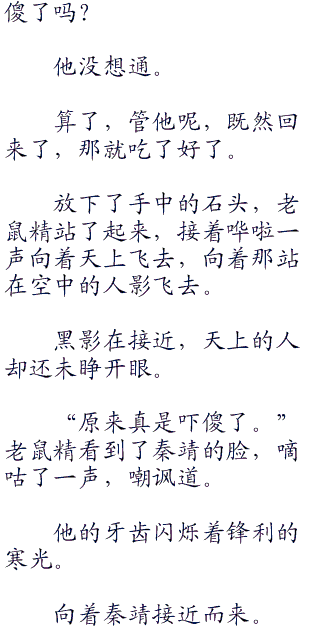 傻了吗？
他没想通。
算了，管他呢，既然回
来了，那就吃了好了。
放下了手中的石头，老
鼠精站了起来，接着哗啦一
声向着天上飞去，向着那站
在空中的人影飞去。
黑影在接近，天上的人
却还未睁开眼。
“原来真是吓傻了。”
老鼠精看到了秦靖的脸，嘀
咕了一声，嘲讽道。
他的牙齿闪烁着锋利的
寒光。
向着秦靖接近而来。